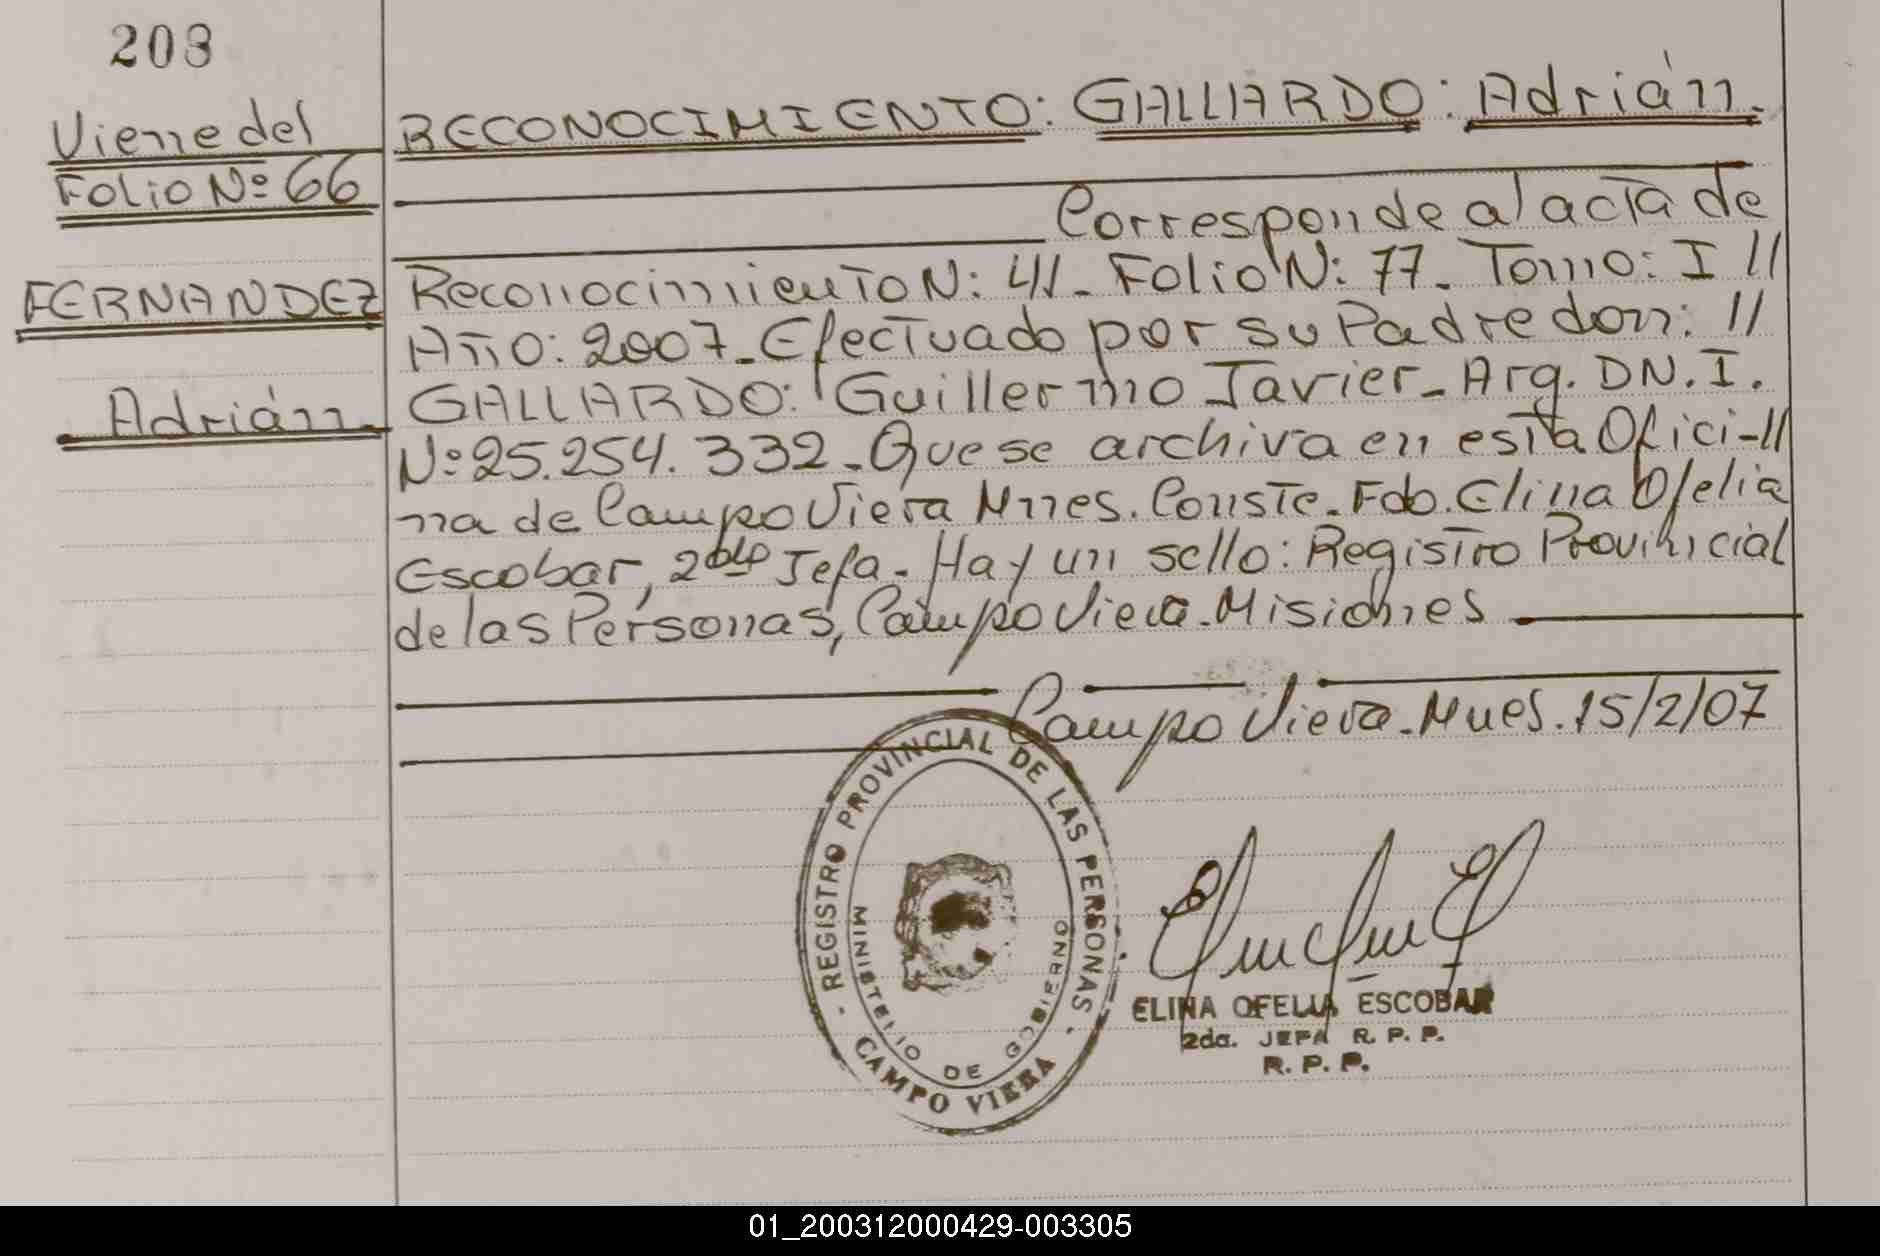 208
Viene del
Folio Nº 66
FERNANDEZ
Adrián.
RECONOCIMIENTO: GALLARDO: Adrián.
Corresponde al acta de
Reconocimiento N: 41. Folio N: 77. Tomo: I //
Año: 2007. Efectuado por su Padre don: //
GALLARDO: Guillermo Javier. Arg. DN.I.
Nº 25.254.332. Que se archiva en esta Ofici-//
na de Campo Viera Mnes. Conste. Fdo. Elina Ofelia
Escobar, 2da Jefa. Hay un sello: Registro Provincial
de las Personas, Campo Viera. Misiones
Campo Viera. Mnes. 15/2/07
- REGISTRO PROVINCIAL DE LAS PERSONAS -
MINISTERIO DE GOBIERNO
CAMPO VIERA
ELINA OFELIA ESCOBAR
2da. JEFA R. P. P.
R. P. P.
01_200312000429-003305